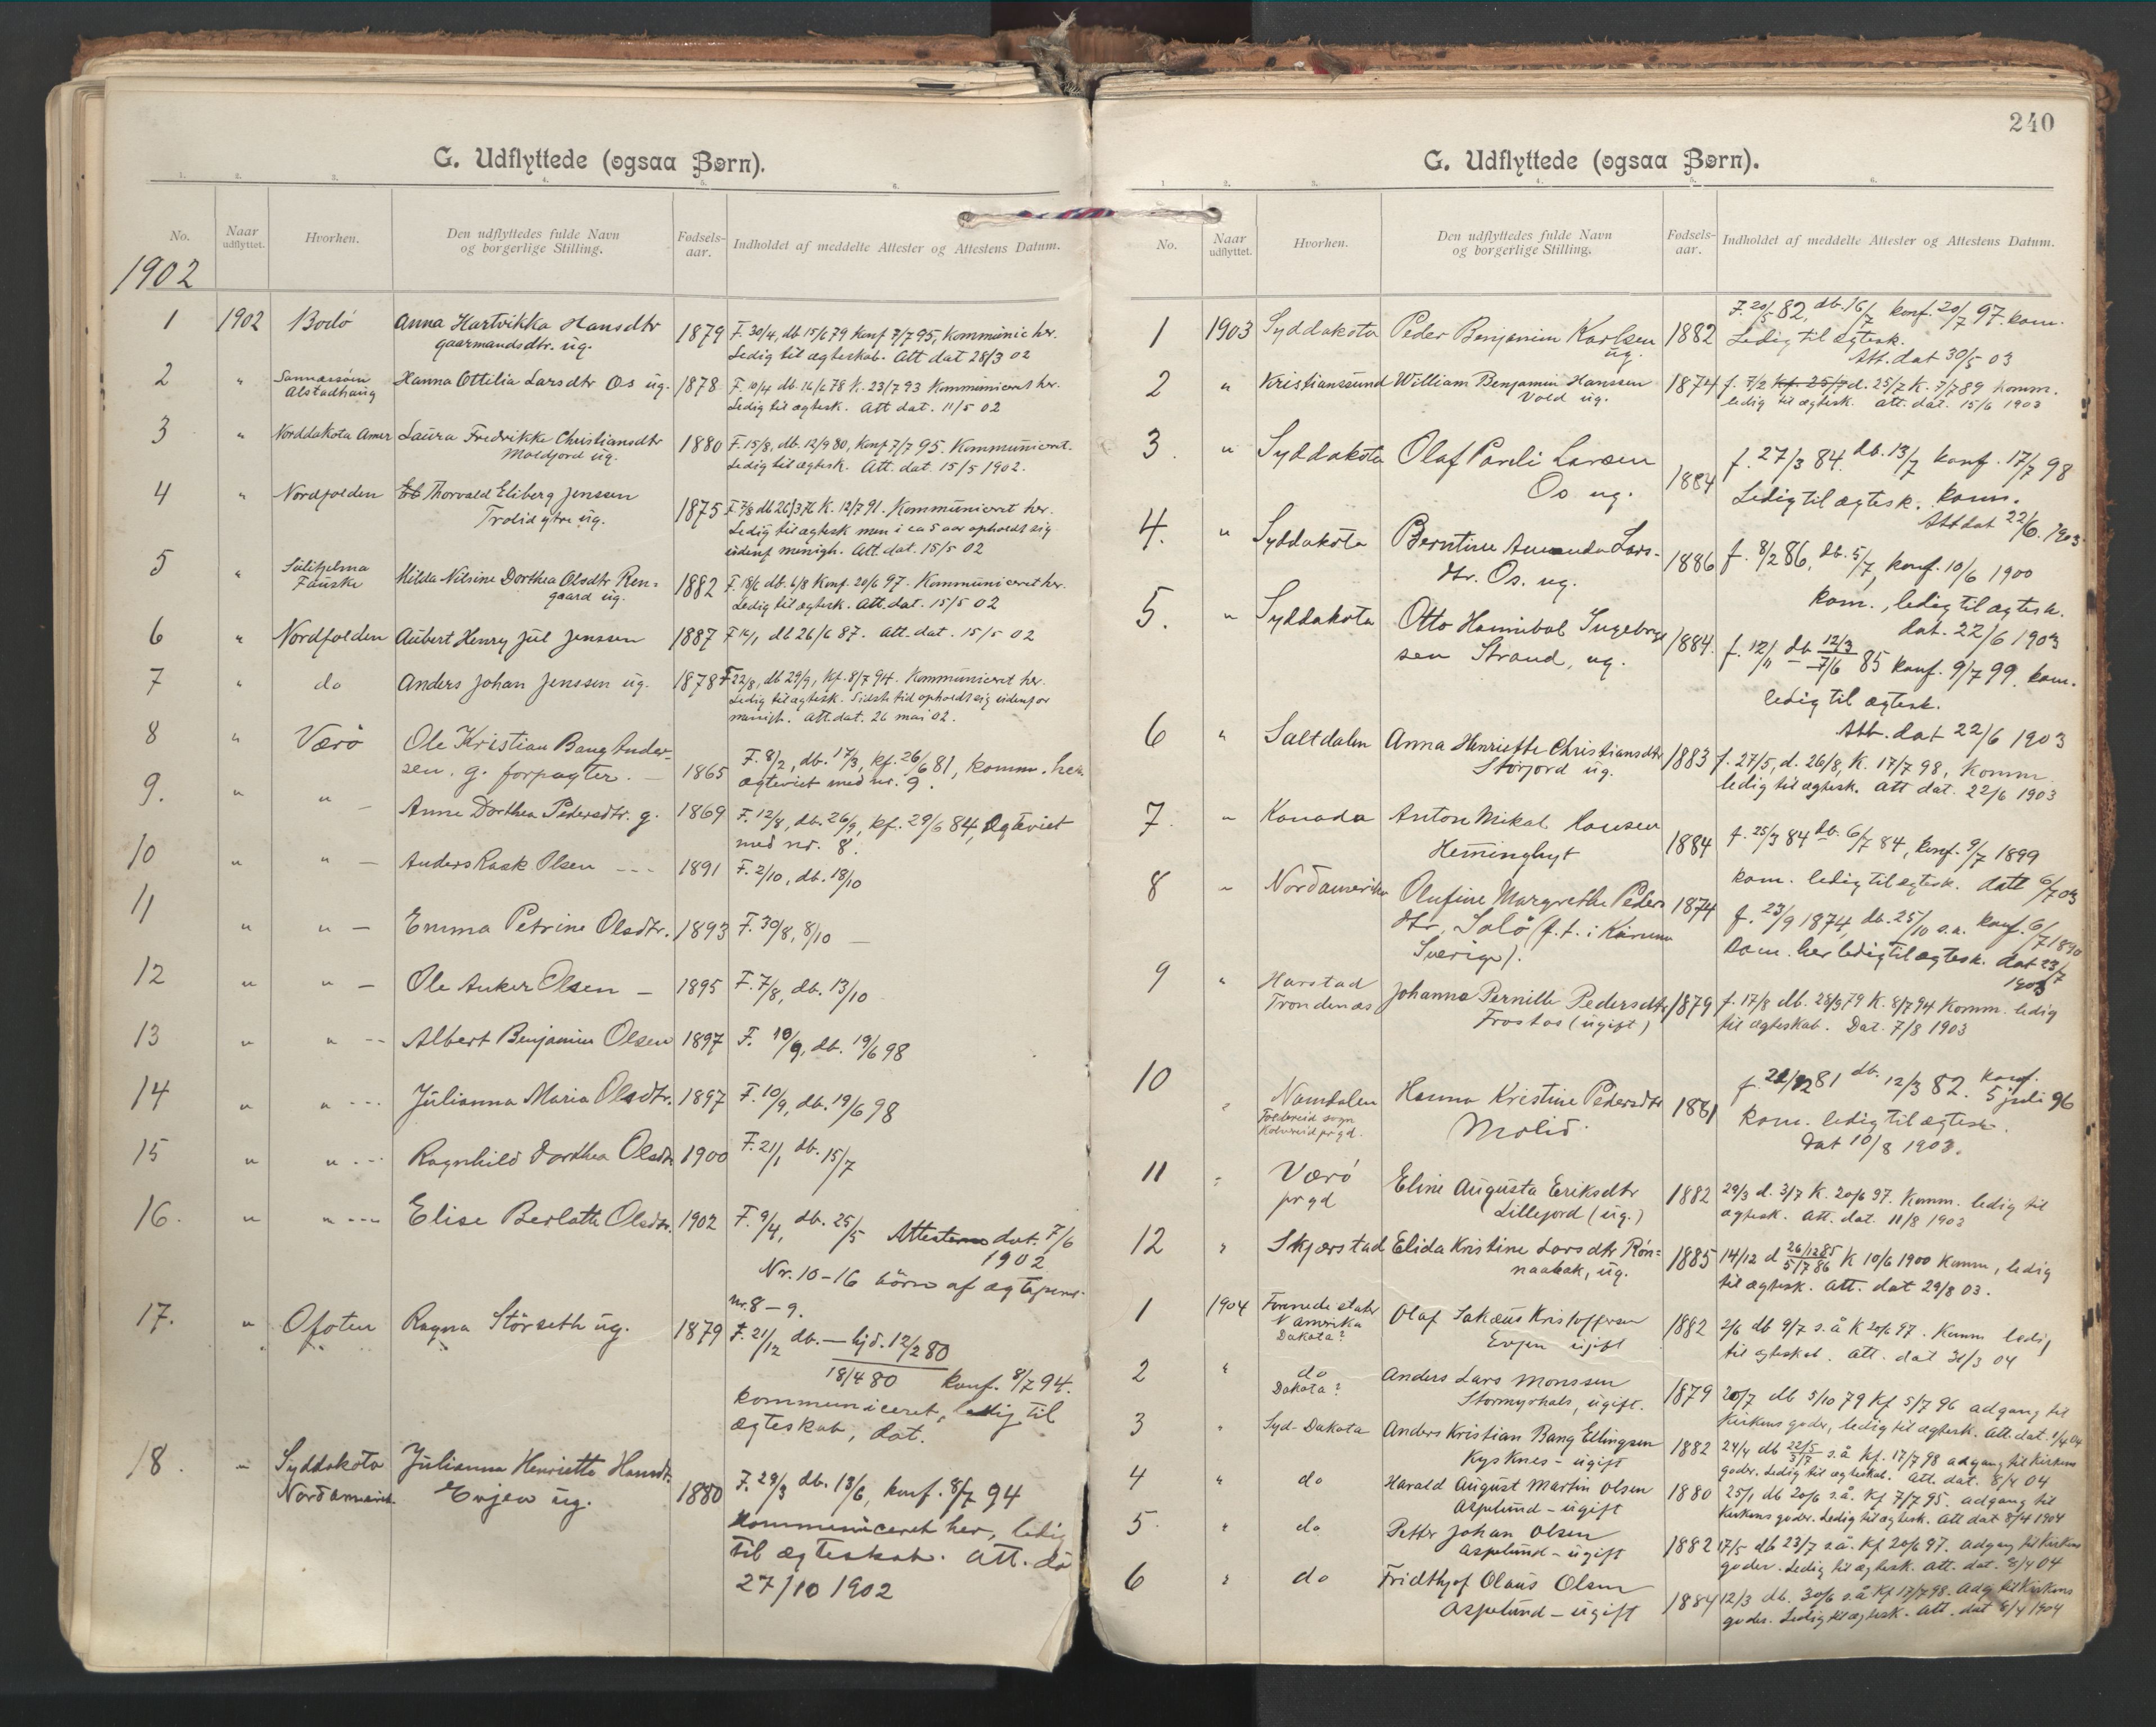 G. Udflyttede (ogsaa Børn).
1. 2. 3. 4. 5. 6.
No. Naar udflyttet. Hvorhen. Den udflyttedes fulde Navn og borgerlige Stilling. Fødsels-aar. Indholdet af meddelte Attester og Attestens Datum.
1902
1 1902 Bodö Anna Hartvikka Hansdtr 1879 F. 30/4, db 15/6 79 Konf 7/7 95, Kommunic her.
gaarmandsdtr. ug. Ledig til ægteskab. Att dat 28/3 02
2 " Alstadhaug Hanna Ottilia Larsdtr Os ug. 1878 F. 10/4 db. 16/6 78 K. 23/7 93 Kommuniceret her.
Ledig til ægtesk. Att dat. 11/5 02
3 " Norddakota Amer Laura Fredrikke Christiansdtr 1880 F. 15/8, db. 12/9 80, Konf 7/7 95. Kommuniceret.
Moldjord ug. Ledig til ægtesk. Att. dat. 15/5 1902.
4 " Nordfolden Thorvald Eliberg Jenssen 1875 db 26/3 76 K. 12/7 91. Kommuniceret her.
Trolid ytre ug. Ledig til ægtesk men i ca 5 aar opholdt sig
udenf menigh. Att. dat. 15/5 02
5 " Sulitjelma Hilda Nilsine Dorthea Olsdtr Ren= 1882 F. 18/6 db. 6/8 Konf. 20/6 97. Kommuniceret her.
Fauske gaard ug. Ledig til ægtesk. Att. dat. 15/5 02
6 " Nordfolden Aubert Henry Jul Jenssen 1887 db 26/6 87. Att. dat. 15/5 02
7 " do Anders Johan Jenssen ug. 1878 F 22/8, db 29/9, Kf. 8/7 94. Kommuniceret her.
Ledig til ægtesk. Sidste tid opholdt sig udenfor
menigh. Att. dat. 26 mai 02.
8 " Værö Ole Kristian Bang Ander- F. 8/2, db. 17/3, Kf. 26/6 81, komm. her.
sen. g. forpagter. — 1865 ægteviet med nr. 9.
9. " " — Anne Dorthea Pedersdtr. g. 1869 F. 12/8, db. 26/9, kf. 29/6 84, Ægteviet
med nr. 8.
10 " " — Anders Rask Olsen --- 1891 F. 2/10, db. 18/10
11 " " — Emma Petrine Olsdtr. 1893 F. 30/8, 8/10 —
12 " " — Ole Anker Olsen — 1895 F. 7/8, db. 13/10
13 " " -- Albert Benjamin Olsen 1897 F. 10/9, db. 19/6 98
14 " " --- Julianna Maria Olsdtr. 1897 F. 10/9, db. 19/6 98
15 " " --- Ragnhild Dorthea Olsdtr. 1900 F. 21/1 db. 15/7
16. " " --- Elise Berlotte Olsdtr. 1902 F. 9/4, db. 25/5 Attesterne dat. 7/6
1902
Nr. 10-16 börn af ægtepar
nr. 8 – 9.
17. " Ofoten Ragna Störseth ug. 1879 F. 21/12 db. — hjd. 12/2 80
18/4 80 konf. 8/7 94.
kommuniceret, ledig til
ægteskab, dat.
18. " Syddakota Julianna Henriette Hansdtr. F. 29/3 db. 13/6, konf. 8/7 94
Nordamerik. Evjen ug. 1880
Kommuniceret her, ledig
til ægteskab. Att. da
27/10 1902
240
G. Udflyttede (ogsaa Børn).
1 2. 3. 4. 5. 6.
No. Naar udflyttet. Hvorhen. Den udflyttedes fulde Navn og borgerlige Stilling. Fødsels-aar. Indholdet af meddelte Attester og Attestens Datum.
1 1903 Syddakota Peder Benjamin Karlsen 1882 F. 20/5 82, db. 16/7 konf. 20/7 97. kom.
ug. Ledig til ægtesk.
Att. dat 30/5 03
2 " Kristianssund William Benjamin Hanssen 1874 f. 7/2 Kf. 25/7 d. 25/7 K. 7/7 89 Komm.
Vold ug. ledig til ægtesk. Att. dat. 15/6 1903
3. " Syddakota Olaf Pareli Larsen f. 27/3 84. db. 13/7 konf. 17/7 98
Os ug. 1884 Ledig til ægtesk. kom.
Att dat 22/6. 1903
4. " Syddakota Berntine Amanda Lars- 1886 f. 8/2 86, db. 5/7, konf. 10/6 1900
dtr. Os. ug. kom., ledig til ægtesk.
dat. 22/6 1903
5. " Syddakota Otto Hannibal Ingebrigt 1884. f. 12/11 db 12/3 7/6 85 konf. 9/7 99. kom.
sen Strand, ug. ledig til ægtesk.
Att. dat 22/6 1903
6 " Saltdalen Anna Henriette Christiansdtr 1883 f. 27/5, d. 26/8, K. 17/7 98, Komm
Storjord ug. ledig til ægtesk. Att dat. 22/6 1903
7. " Kanada Anton Mikal Hansen 1884 f. 25/3 84 db. 6/7 84, konf. 9/7 1899
Hemminghyt kom. ledig til ægtesk. datt 6/7 03
8 " Nordamerika Olufine Margrethe Peders 1874 f. 23/9 1874, db. 25/10 s.a. konf. 6/7 1890
dtr. Solö (f. t. i Kiruna kom. her ledig til ægtesk. dat 23/7
Sverige). 1903
9 " Harstad Johanna Pernille Pedersdtr 1879 f. 17/8 db. 28/9 79 K. 8/7 94 Komm. ledig
Trondenæs Frostos (ugift) til ægteskab. Dat. 7/8 1903
10 " Namdalen Hanna Kristine Pedersdtr 1881 db. 12/3 82. konf. 5 juli 96
Foldereid sogn Molid. kom. ledig til ægtesk.
Kolvereid prgd. dat 10/8 1903.
11 " Værö Eline Augusta Eriksdtr 1882 29/3 d. 3/7 K. 20/6 97. Komm. ledig til
prgd Lillejord (ug.) ægtesk. Att. dat. 11/8 1903
12 " Skjerstad Elida Kristine Larsdtr Rön= 1885 14/12 d 26/12 85 5/7 86 K 10/6 1900 Komm, ledig
naabak, ug. til ægtesk. Att. dat 29/8 03.
1 1904 Forenede stater Olaf Sakæus Kristoffersen 1882 2/6 db 9/7 s.å K 20/6 97. Komm ledig
N Amerika Evjen ugift til ægteskab. Att. dat 3/3 04
Dakota?
2 " do Anders Lars Monssen 1879 20/7 db 5/10 79 Kf 5/7 96 adgang til
Dakota? Stormyrhals, ugift. Kirkens goder, ledig til ægtesk. Att. dat. 1/4 04
3 " Syd-Dakota Anders Kristian Bang Ellingsen 1882 24/4 db 22/5 3/7 s.å Kf. 17/7 98 adgang til Kirkens
Kysknes - ugift goder. Ledig til ægteskab. Att. dat. 8/4 04
4 " do Harald August Martin Olsen 1880 25/1 db 20/6 s.å. Kf 7/7 95. adgang til
Aspelund - ugift Kirkens goder. Ledig til ægtesk. Att dat 8/4 1904
5. " do Petter Johan Olsen 1882 17/5 db 23/7 s.å. Kf 20/6 97. adgang til Kirkens
Aspelund - ugift goder. Ledig til ægtesk. Att. dat. 8/4 04
6 " do Fridthjof Olaus Olsen 1884 12/3 db. 30/6 s.å Kf 17/7 98. Adg til Kirkens
Aspelund - ugift goder. Ledig til ægtesk. Att. dat 8/4 1904